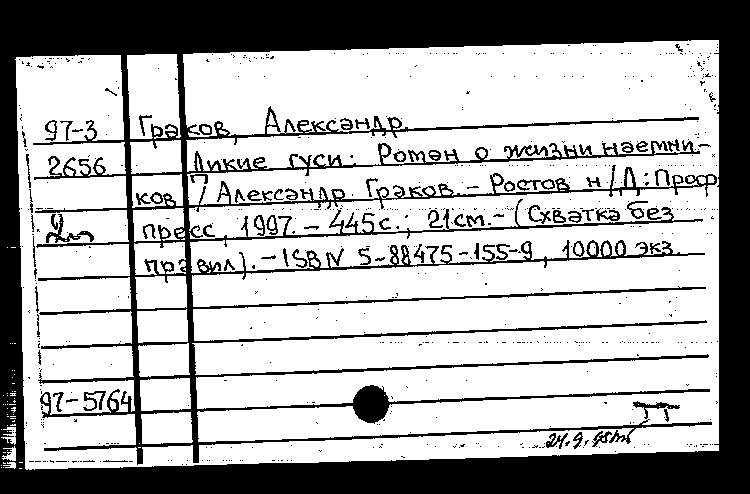 97-3 Граков, Александр.
2656 Дикие гуси: Роман о жизни наемни-
ков / Александр Граков. - Ростов н/Д: Проф-
пресс, 1997. - 445с.; 21см. - (Схватка без
правил). - ISBN 5-88475-155-9, 10000 экз.
97-5764